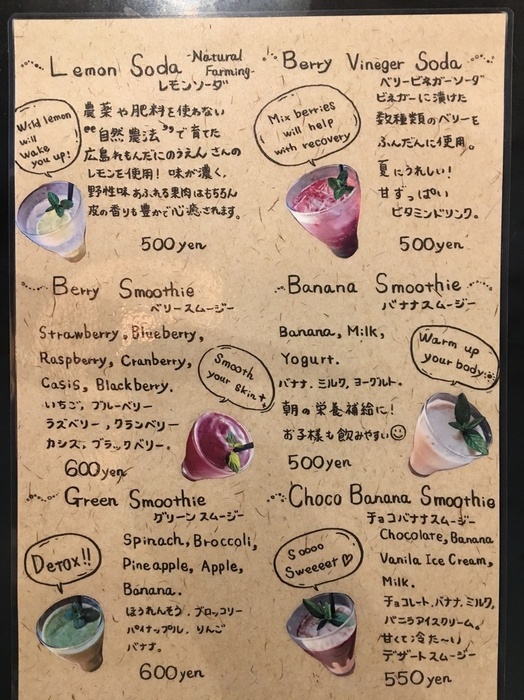 Lemon Soda -Natural Farming-
レモンソーダ
Wild lemon
will
wake
you up!
農薬や肥料を使わない
"自然農法"で育てた
広島れもんだにのうえんさんの
レモンを使用! 味が濃く、
野性味あふれる果肉はもちろん
皮の香りも豊かで心癒されます。
500yen
Berry Vineger Soda
ベリービネガーソーダ
Mix berries
will help
with recovery
ビネガーに漬けた
数種類のベリーを
ふんだんに使用。
夏にうれしい!
甘ずっぱい
ビタミンドリンク。
500yen
Berry Smoothie
ベリースムージー
Strawberry, Blueberry,
Raspberry, Cranberry,
Casis, Blackberry.
いちご、ブルーベリー
ラズベリー、クランベリー
カシス、ブラックベリー。
Smooth
your skin
600yen
Banana Smoothie
バナナスムージー
Banana, Milk,
Yogurt.
バナナ、ミルク、ヨーグルト。
朝の栄養補給に!
お子様も飲みやすい☺
Warm up
your body
500yen
Green Smoothie
グリーンスムージー
Detox!!
Spinach, Broccoli,
Pineapple, Apple,
Banana.
ほうれんそう、ブロッコリー
パイナップル、りんご
バナナ。
600yen
Choco Banana Smoothie
チョコバナナスムージー
Soooo
Sweeeet♡
Chocolate, Banana
Vanilla Ice Cream,
Milk.
チョコレート、バナナ、ミルク、
バニラアイスクリーム。
甘くて冷た〜い
デザートスムージー
550yen